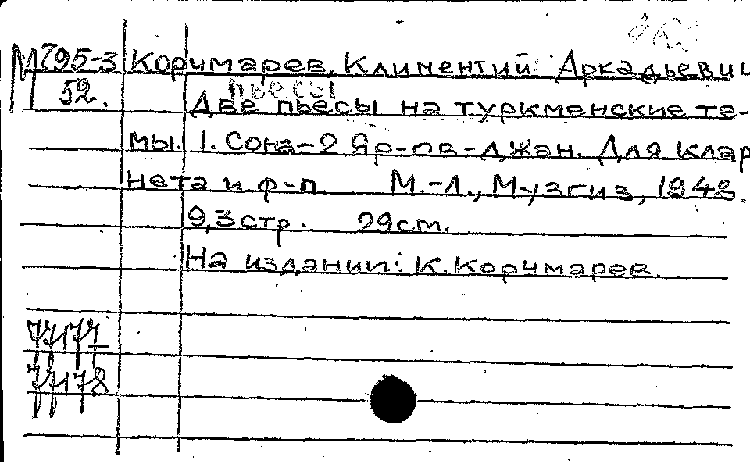 М 795-3 Корчмарев, Климентий Аркадьевич
52. пьесы
Две пьесы на туркменские те-
мы. 1. Сона-2 Яр-ов-джан. Для клар
нета и ф-п. М.-Л., Музгиз, 1948.
9,3 стр. 29 см.
На издании: К. Корчмарев.
77177
77178